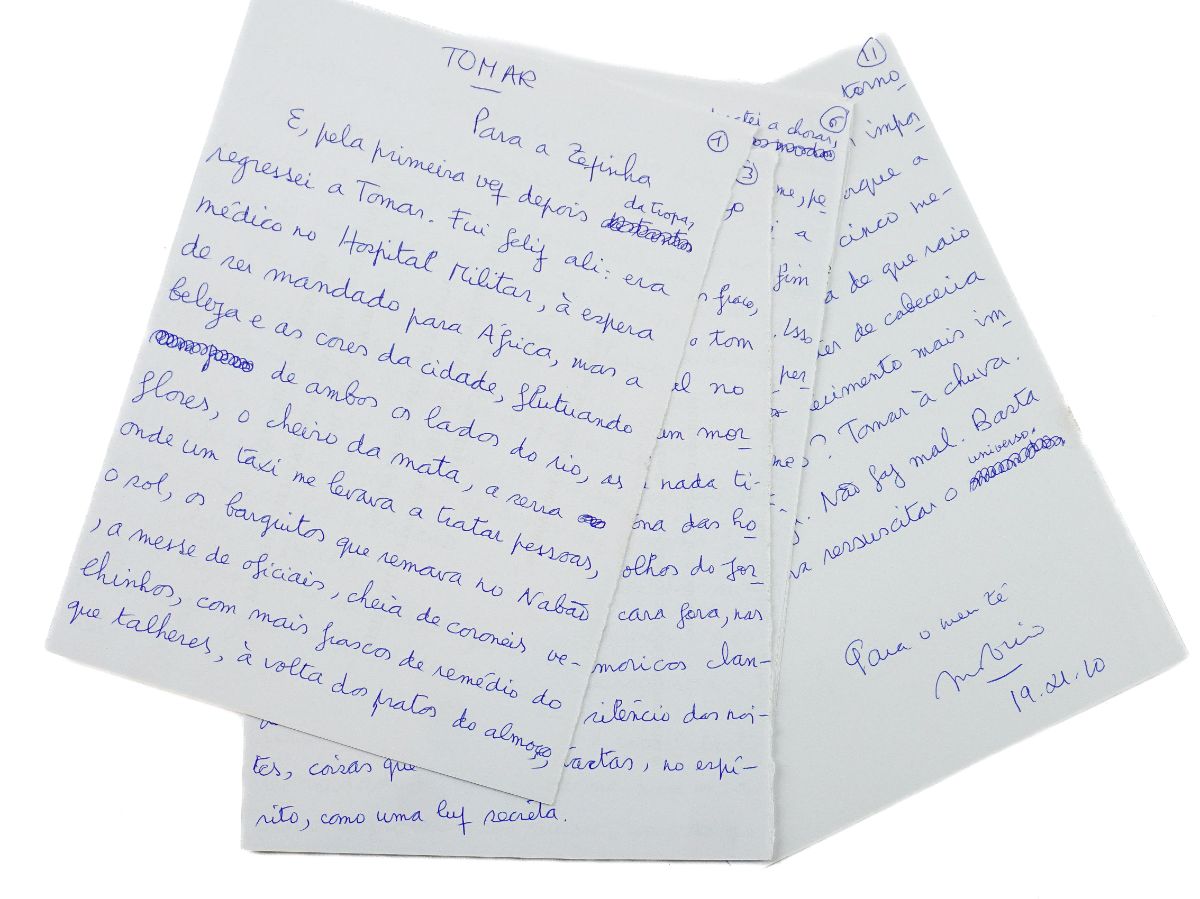 TOMAR
Para a Zezinha
1
E, pela primeira vez depois da tropa,
regressei a Tomar. Fui feliz ali: era
médico no Hospital Militar, à espera
de ser mandado para África, mas a
beleza e as cores da cidade, flutuando
de ambos os lados do rio, as
flores, o cheiro da mata, a serra
onde um taxi me levava a tratar pessoas,
o sol, os barquitos que remava no Nabão
, a messe de oficiais, cheia de coronéis ve-
lhinhos, com mais frascos de remédio do
que talheres, à volta dos pratos do almoço,
3
fraco,
o tom
no
mor
nada ti-
das ho
olhos do for
cara fora, nas
moricos clan-
silêncio das noi-
tes, coisas que
no espí-
rito, como uma luz secreta.
6
a chorar,
me, pe
i a
fim
. Isso
per
11
torno
impor
a
cinco me-
de que raio
de cabeceira
ecimento mais im
? Tomar à chuva.
. Não faz mal. Basta
ressuscitar o universo.
Para o meu té
19.XI.10